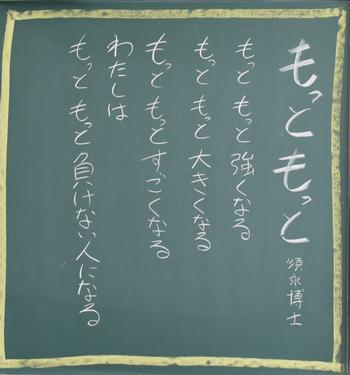 もっと もっと
須永博士
もっと もっと 強くなる
もっと もっと 大きくなる
もっと もっとすごくなる
わたしは
もっと もっと 負けない人になる